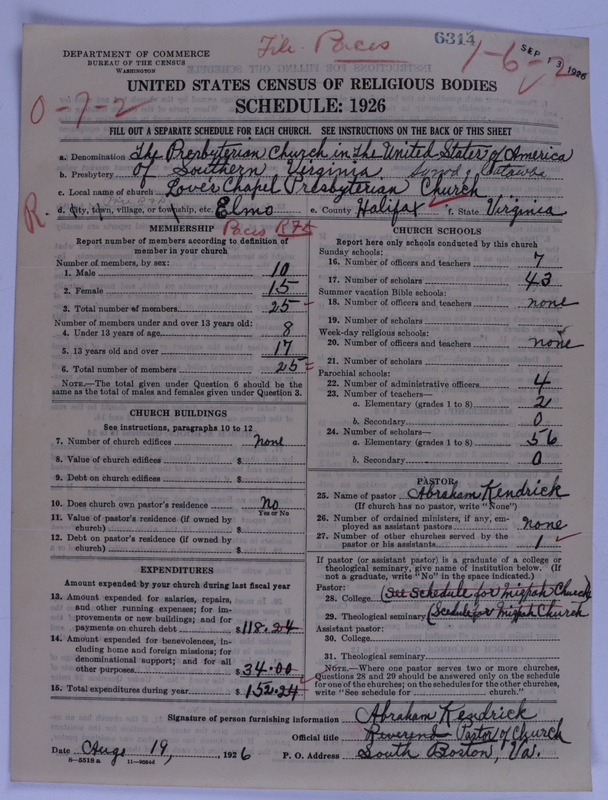 File. Paces
6314
1-6-2
SEP 13 1926
DEPARTMENT OF COMMERCE
BUREAU OF THE CENSUS
WASHINGTON
UNITED STATES CENSUS OF RELIGIOUS BODIES
0-7-2
SCHEDULE: 1926
FILL OUT A SEPARATE SCHEDULE FOR EACH CHURCH. SEE INSTRUCTIONS ON THE BACK OF THIS SHEET
a. Denomination The Presbyterian Church in the United States of America
b. Presbytery of Southern Virginia Synod of Catawba
c. Local name of church Lover Chapel Presbyterian Church
R.
d. City, town, village, or township, etc. Elmo e. County Halifax f. State Virginia
Paces RFD
MEMBERSHIP
Report number of members according to definition of
member in your church
Number of members, by sex:
1. Male 10
2. Female 15
3. Total number of members 25
Number of members under and over 13 years old:
4. Under 13 years of age 8
5. 13 years old and over 17
6. Total number of members 25
NOTE.—The total given under Question 6 should be the
same as the total of males and females given under Question 3.
CHURCH BUILDINGS
See instructions, paragraphs 10 to 12
7. Number of church edifices none
8. Value of church edifices $
9. Debt on church edifices $
10. Does church own pastor's residence No
Yes or No
11. Value of pastor's residence (if owned by
church) $
12. Debt on pastor's residence (if owned by
church) $
EXPENDITURES
Amount expended by your church during last fiscal year
13. Amount expended for salaries, repairs,
and other running expenses; for im-
provements or new buildings; and for
payments on church debt $118.24
14. Amount expended for benevolences, in-
cluding home and foreign missions; for
denominational support; and for all
other purposes $34.00
15. Total expenditures during year $152.24
CHURCH SCHOOLS
Report here only schools conducted by this church
Sunday schools:
16. Number of officers and teachers 7
17. Number of scholars 43
Summer vacation Bible schools:
18. Number of officers and teachers none
19. Number of scholars
Week-day religious schools:
20. Number of officers and teachers none
21. Number of scholars
Parochial schools:
22. Number of administrative officers 4
23. Number of teachers—
a. Elementary (grades 1 to 8) 2
b. Secondary 0
24. Number of scholars—
a. Elementary (grades 1 to 8) 56
b. Secondary 0
PASTOR
25. Name of pastor Abraham Kendrick
(If church has no pastor, write "None")
26. Number of ordained ministers, if any, em-
ployed as assistant pastors none
27. Number of other churches served by the
pastor or his assistants 1
If pastor (or assistant pastor) is a graduate of a college or
theological seminary, give name of institution below. (If
not a graduate, write "No" in the space indicated.)
Pastor:
28. College (See Schedule for Mizpah Church
29. Theological seminary (Scedule for Mizpah Church
Assistant pastor:
30. College
31. Theological seminary
NOTE.—Where one pastor serves two or more churches,
Questions 28 and 29 should be answered only on the schedule
for one of the churches; on the schedules for the other churches,
write "See schedule for church."
Signature of person furnishing information Abraham Kendrick
Official title Reverend Pastor of Church
Date Aug. 19, 1926 P. O. Address South Boston, Va.
8—5518 a 11—9054d